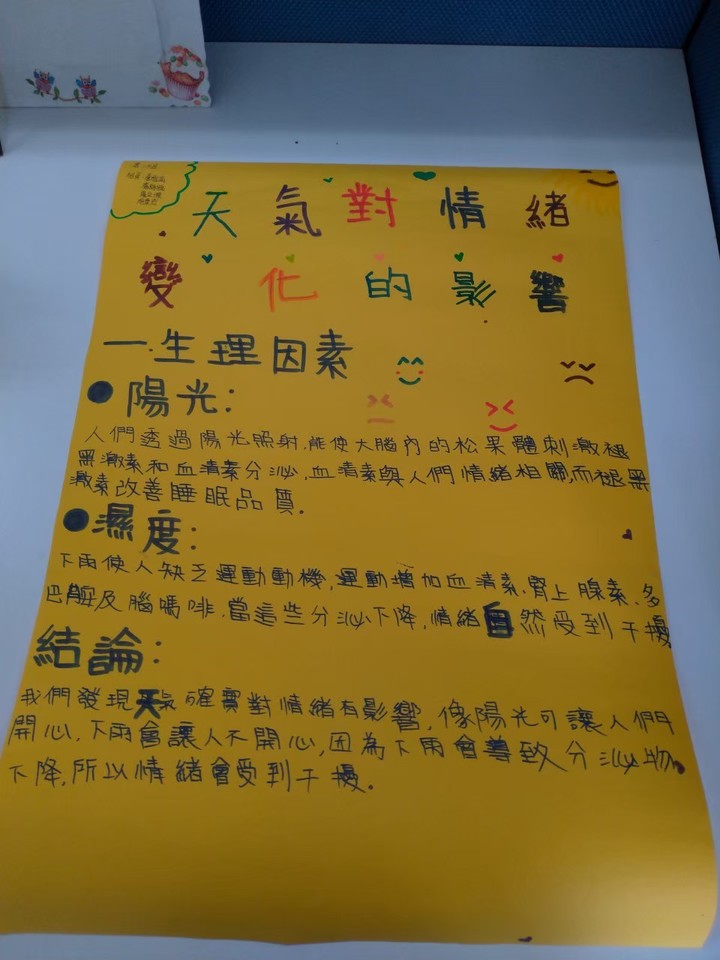 天氣對情緒
變化的影響
一.生理因素
●陽光:
人們透過陽光照射,能使大腦內的松果體刺激褪
黑激素和血清素分泌,血清素與人們情緒相關,而褪黑
激素改善睡眠品質.
●濕度:
下雨使人缺乏運動動機,運動增加血清素、腎上腺素、多
巴胺及腦嗎啡.當這些分泌下降,情緒自然受到干擾
結論:
我們發現天氣確實對情緒有影響,像陽光可讓人們
開心,下雨會讓人不開心,因為下雨會導致分泌物
下降,所以情緒會受到干擾.